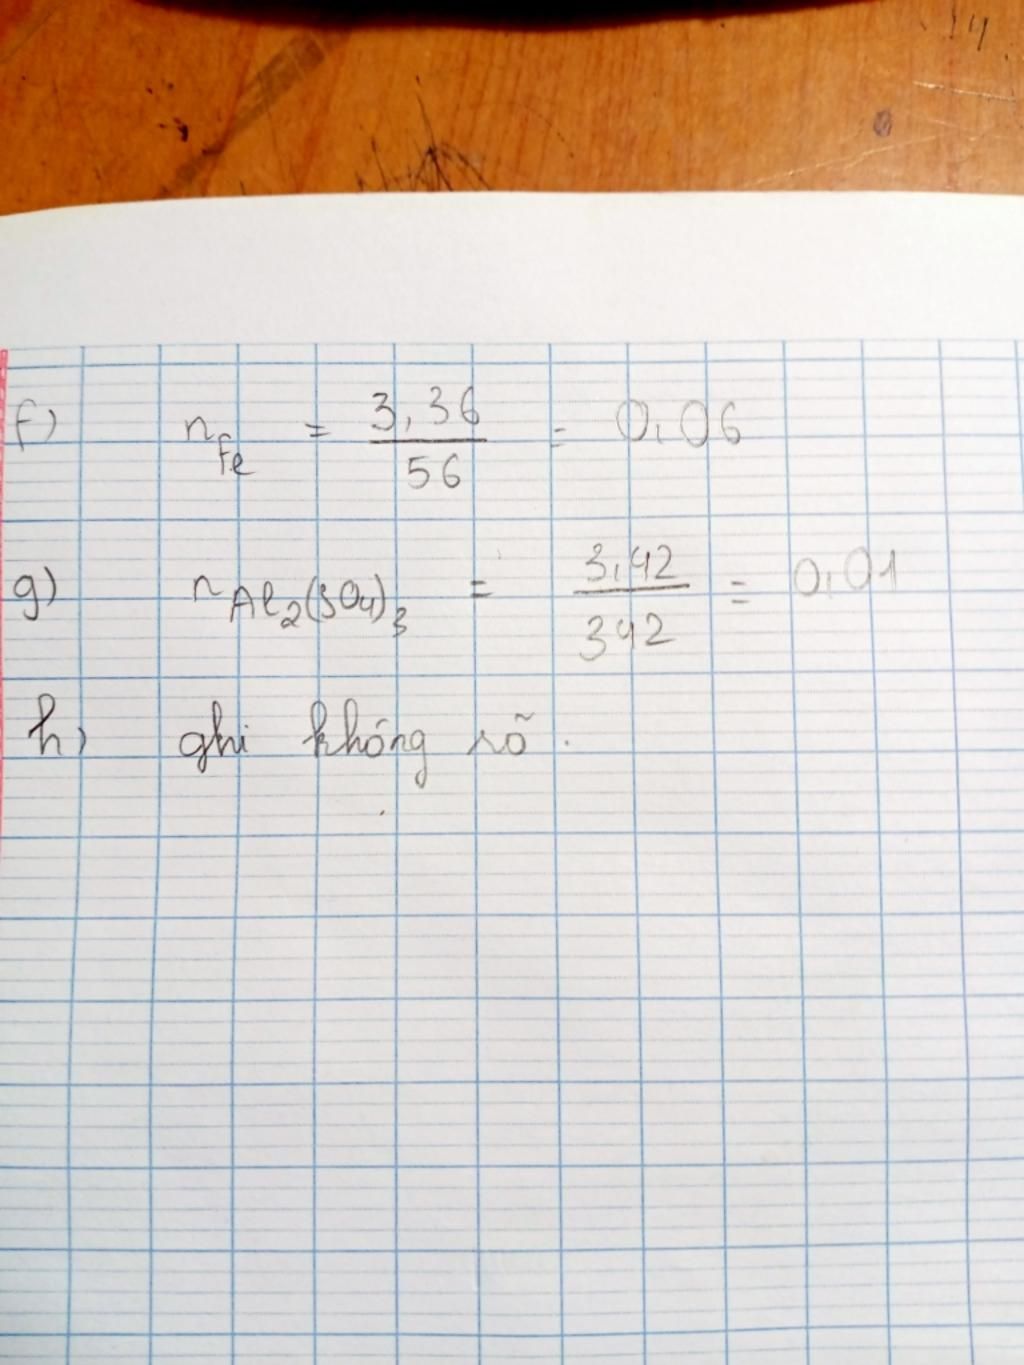 f) n Fe = 3,36 / 56 = 0,06
g) n Al2(SO4)3 = 3,42 / 342 = 0,01
h) ghi không rõ.